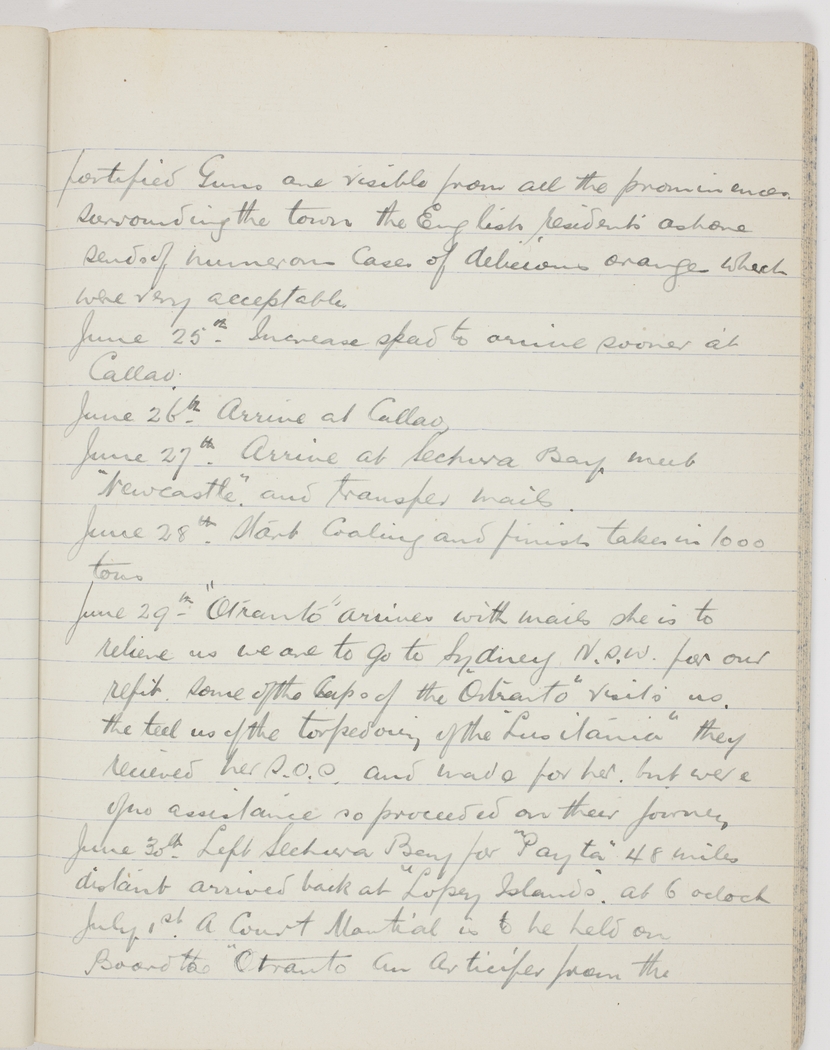 fortified Guns are visible from all the prominences
surrounding the town the English residents ashore
sends of numerous Cases of delicious oranges which
were very acceptable
June 25th Increase spead to arrive sooner at
Callao.
June 26th Arrive at Callao,
June 27th Arrive at Sechura Bay meet
"Newcastle" and transfer mails.
June 28th Start Coaling and finish takes in 1000
tons
June 29th "Otranto" arrives with mails she is to
relieve us we are to go to Sydney N.S.W. for our
refit. Some of the of the "Otranto" visits us.
the tell us of the torpedoing of the "Lusitania" they
recieved her S.O.S. and made for her. but were
of no assistance so proceeded on their journey
June 30th Left Sechura Bay for "Payta" 48 miles
distant arrived back at "Lopey Islands". at 6 oclock
July 1st. A Court Martial is to be held on
Board the "Otranto An Artificer from the